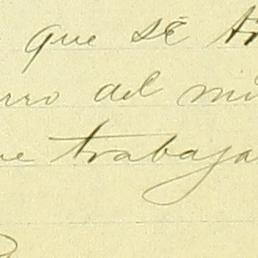 que sé tr
rro del mi
ue trabaja